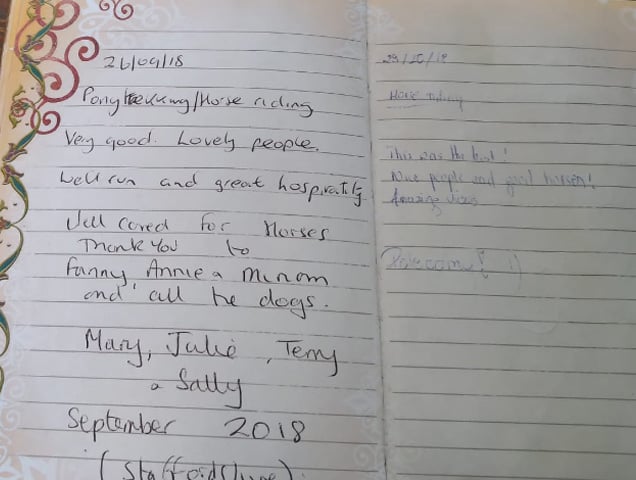 26/09/18
Pony trekking/Horse riding
Very good. Lovely people.
Well run and great hospitatily
Well cared for Horses
Thank You to
Fanny, Annie & 
and all the dogs.
Mary, Julie, Terry
& Sally
September 2018
(Staffordshire)
Horse riding
This was the best!
Nice people and good horses!
Amazing views